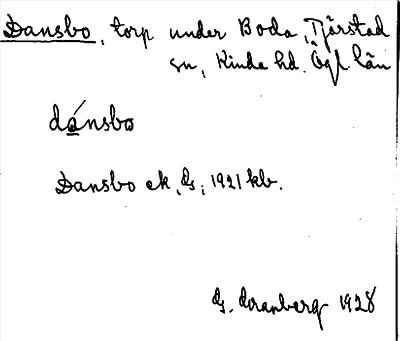 Dansbo, torp under Boda, Tjärstad
sn, Kinda hd. Ögl län
dánsbo
Dansbo ek, ds; 1921 kb.
1928